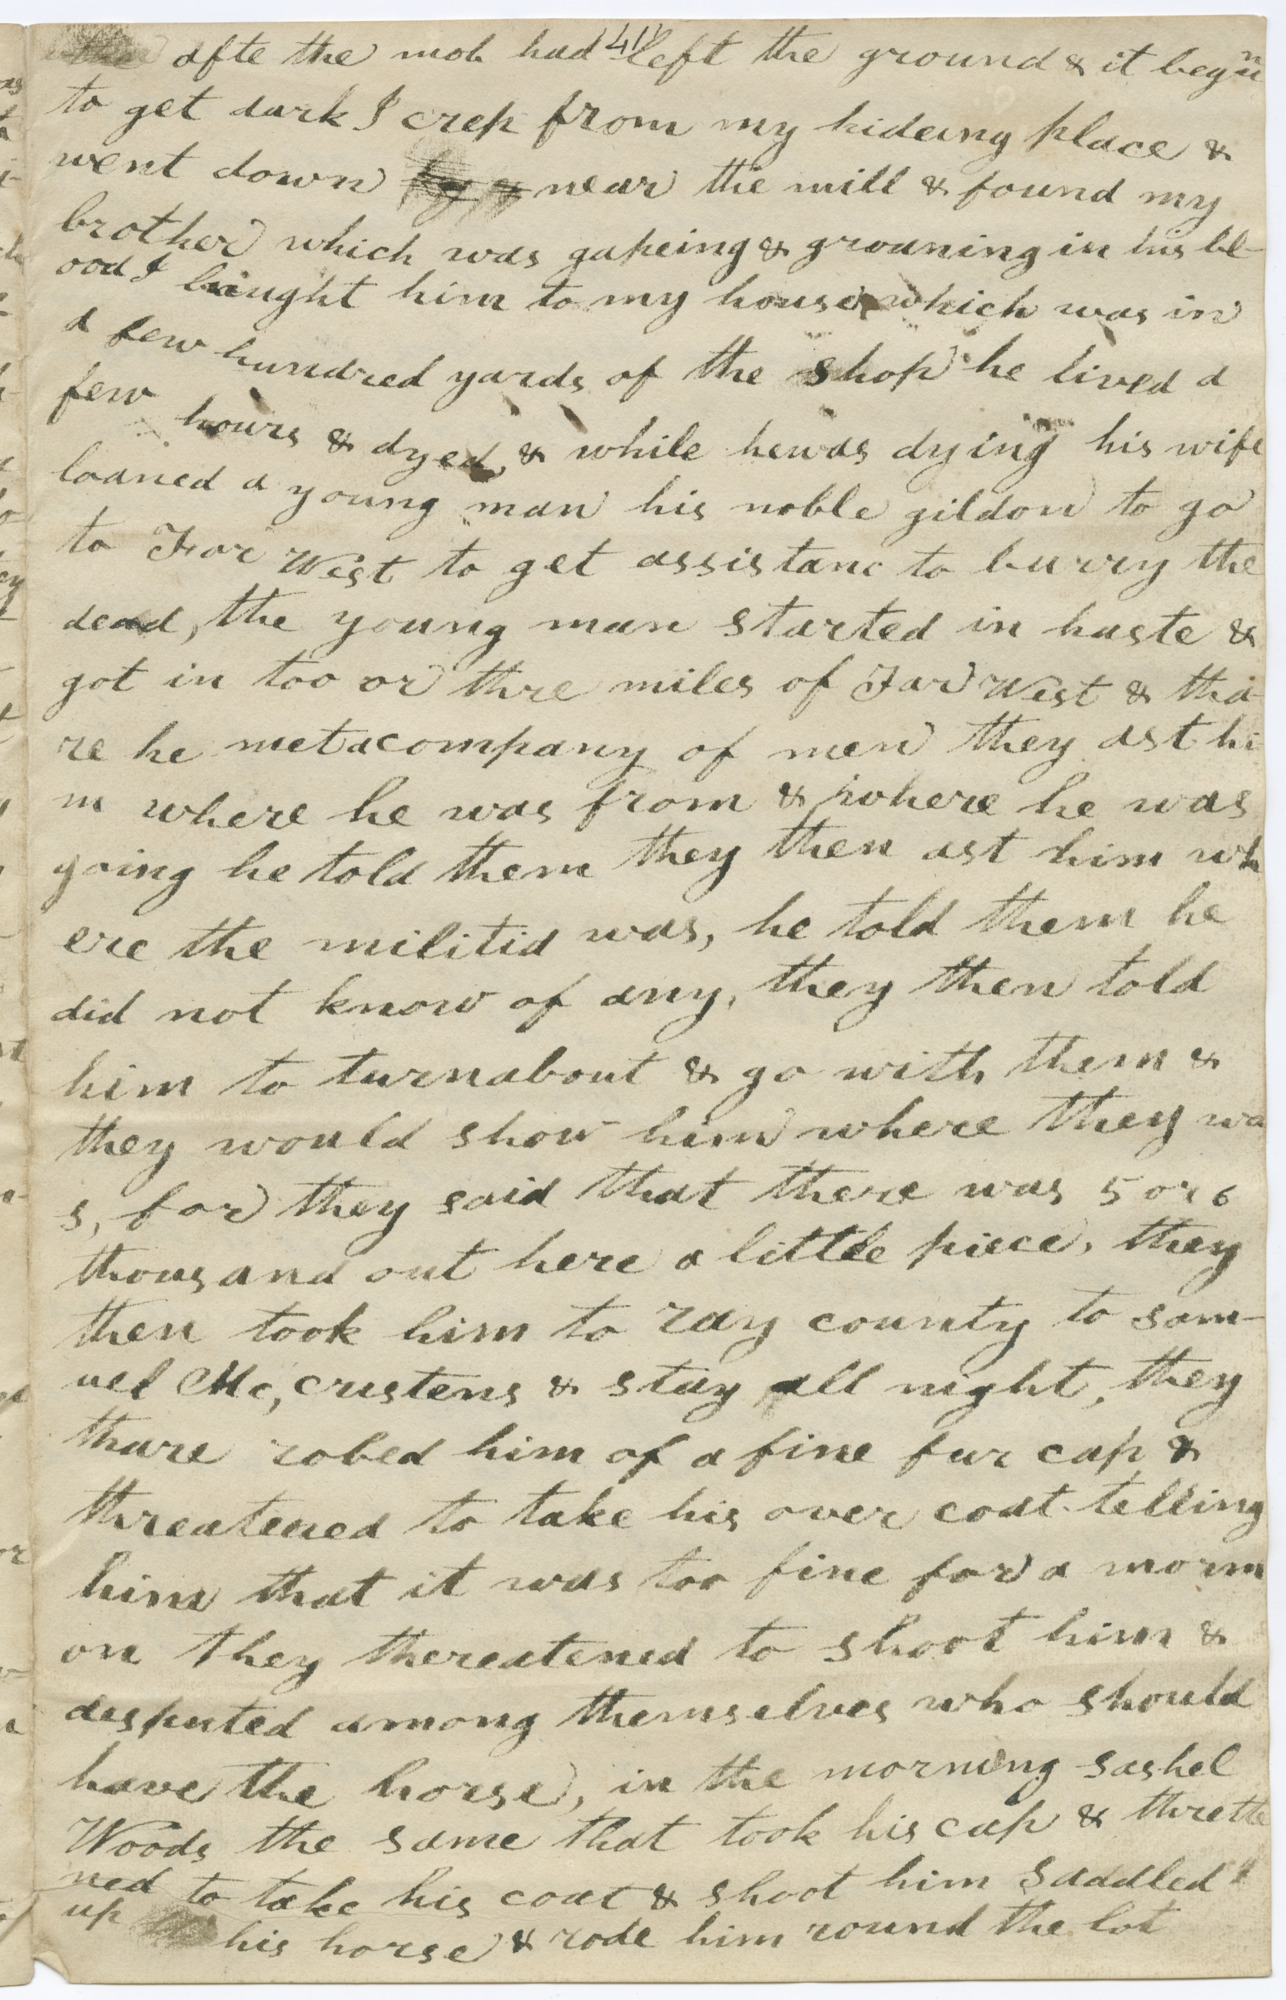 afte the mob had left the ground & it begun
to get dark I crep from my hideing place &
went down near the mill & found my
brother which was gapeing & groaning in his bl-
ood I braught him to my house which was in
a few hundred yards of the shop he lived a
few hours & dyed, & while hewas dying his wife
loaned a young man his noble gildon to go
to Far West to get assistanc to burry the
dead, the young man started in haste &
got in too or thre miles of Far West & tha
re he metacompany of men they ast hi
m where he was from & where he was
going he told them they then ast him wh
ere the militia was, he told them he
did not know of any, they then told
him to turnabout & go with them &
they would show him where they wa
s, for they said that there was 5 or 6
thousand out here a little piece, they
then took him to ray county to sam-
uel Mc,crustens & stay all night, they
thare robed him of a fine fur cap &
threatened to take his over coat telling
him that it was too fine for a morm
on they thereatened to shoot him &
desputed among themselves who should
have the horse, in the morning sashel
Woods the same that took his cap & thrette
ned to take his coat & shoot him saddled
up his horse & rode him round the lot